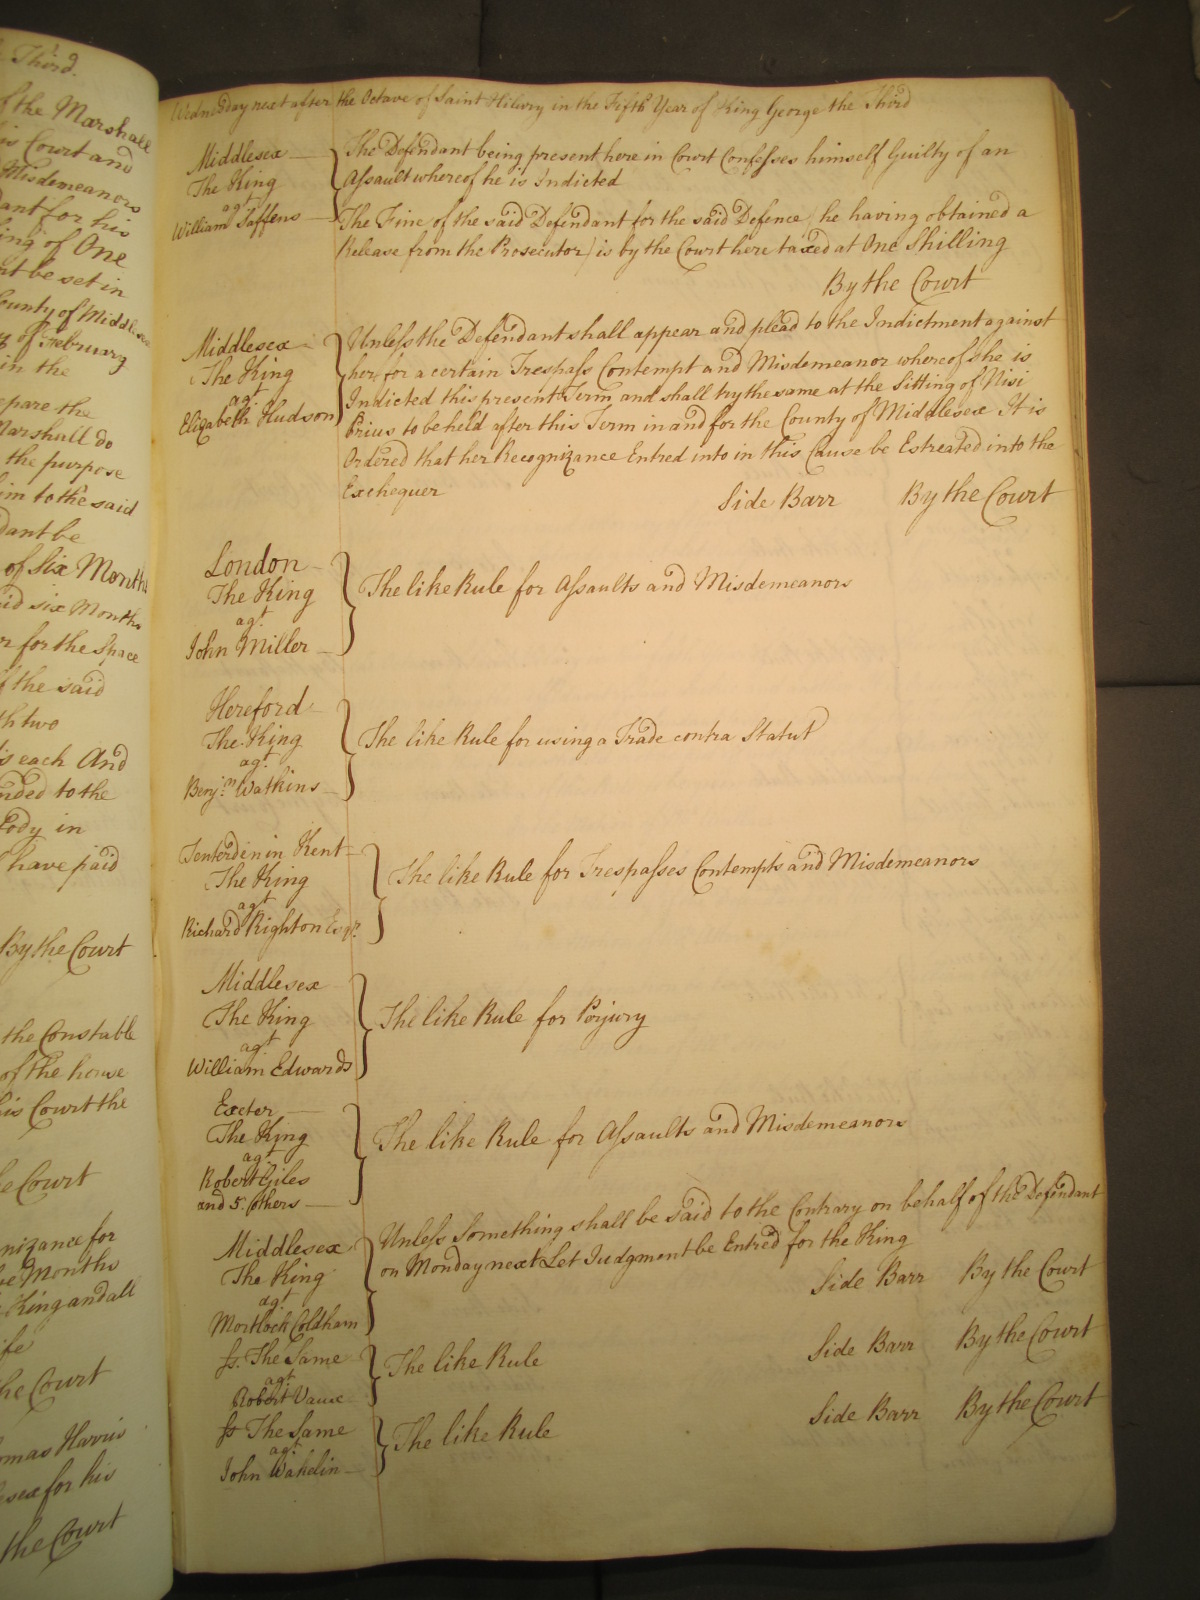 Third.
of the Marshall
is Court and
Misdemeanors
ant for his
ing of One
nt be set in
County of Middlesex
of February
in the
epare the
Marshall do
the purpose
im to the said
dant be
of Six Months
id six Months
r for the Space
f the said
th two
s each And
nded to the
Body in
have paid
By the Court
the Constable
of the house
is Court the
e Court
nizance for
ve Months
King and all
ife
he Court
omas Harris
esex for his
the Court
Wednesday next after the Octave of Saint Hilary in the Fifth Year of King George the Third
Middlesex
The King
agt
William Taffens
The Defendant being present here in Court Confesses himself Guilty of an
Assault whereof he is Indicted
The Fine of the said Defendant for the said Defence (he having obtained a
Release from the Prosecutor) is by the Court here taxed at One Shilling
By the Court
Middlesex
The King
agt
Elizabeth Hudson
Unless the Defendant shall appear and plead to the Indictment against
her for a certain Trespass Contempt and Misdemeanor whereof she is
Indicted this present Term and shall try the same at the Sitting of Nisi
Prius to be held after this Term in and for the County of Middlesex It is
Ordered that her Recognizance Entred into in this Cause be Estreated into the
Exchequer
Side Barr By the Court
London
The King
agt
John Miller
The like Rule for Assaults and Misdemeanors
Hereford
The King
agt
Benjn. Watkins
The like Rule for using a Trade contra Statut
Tenterden in Kent
The King
agt
Richard Righton Esqr.
The like Rule for Trespasses Contempts and Misdemeanors
Middlesex
The King
agt
William Edwards
The like Rule for Perjury
Exeter
The King
agt
Robert Giles
and 5 Others
The like Rule for Assaults and Misdemeanors
Middlesex
The King
agt
Mortlock Coldham
Unless Something shall be said to the Contrary on behalf of the Defendant
on Monday next Let Judgment be Entred for the King
Side Barr By the Court
ss. The Same
agt
Robert Vause
The like Rule
Side Barr By the Court
ss The Same
agt
John Wakelin
The like Rule
Side Barr By the Court